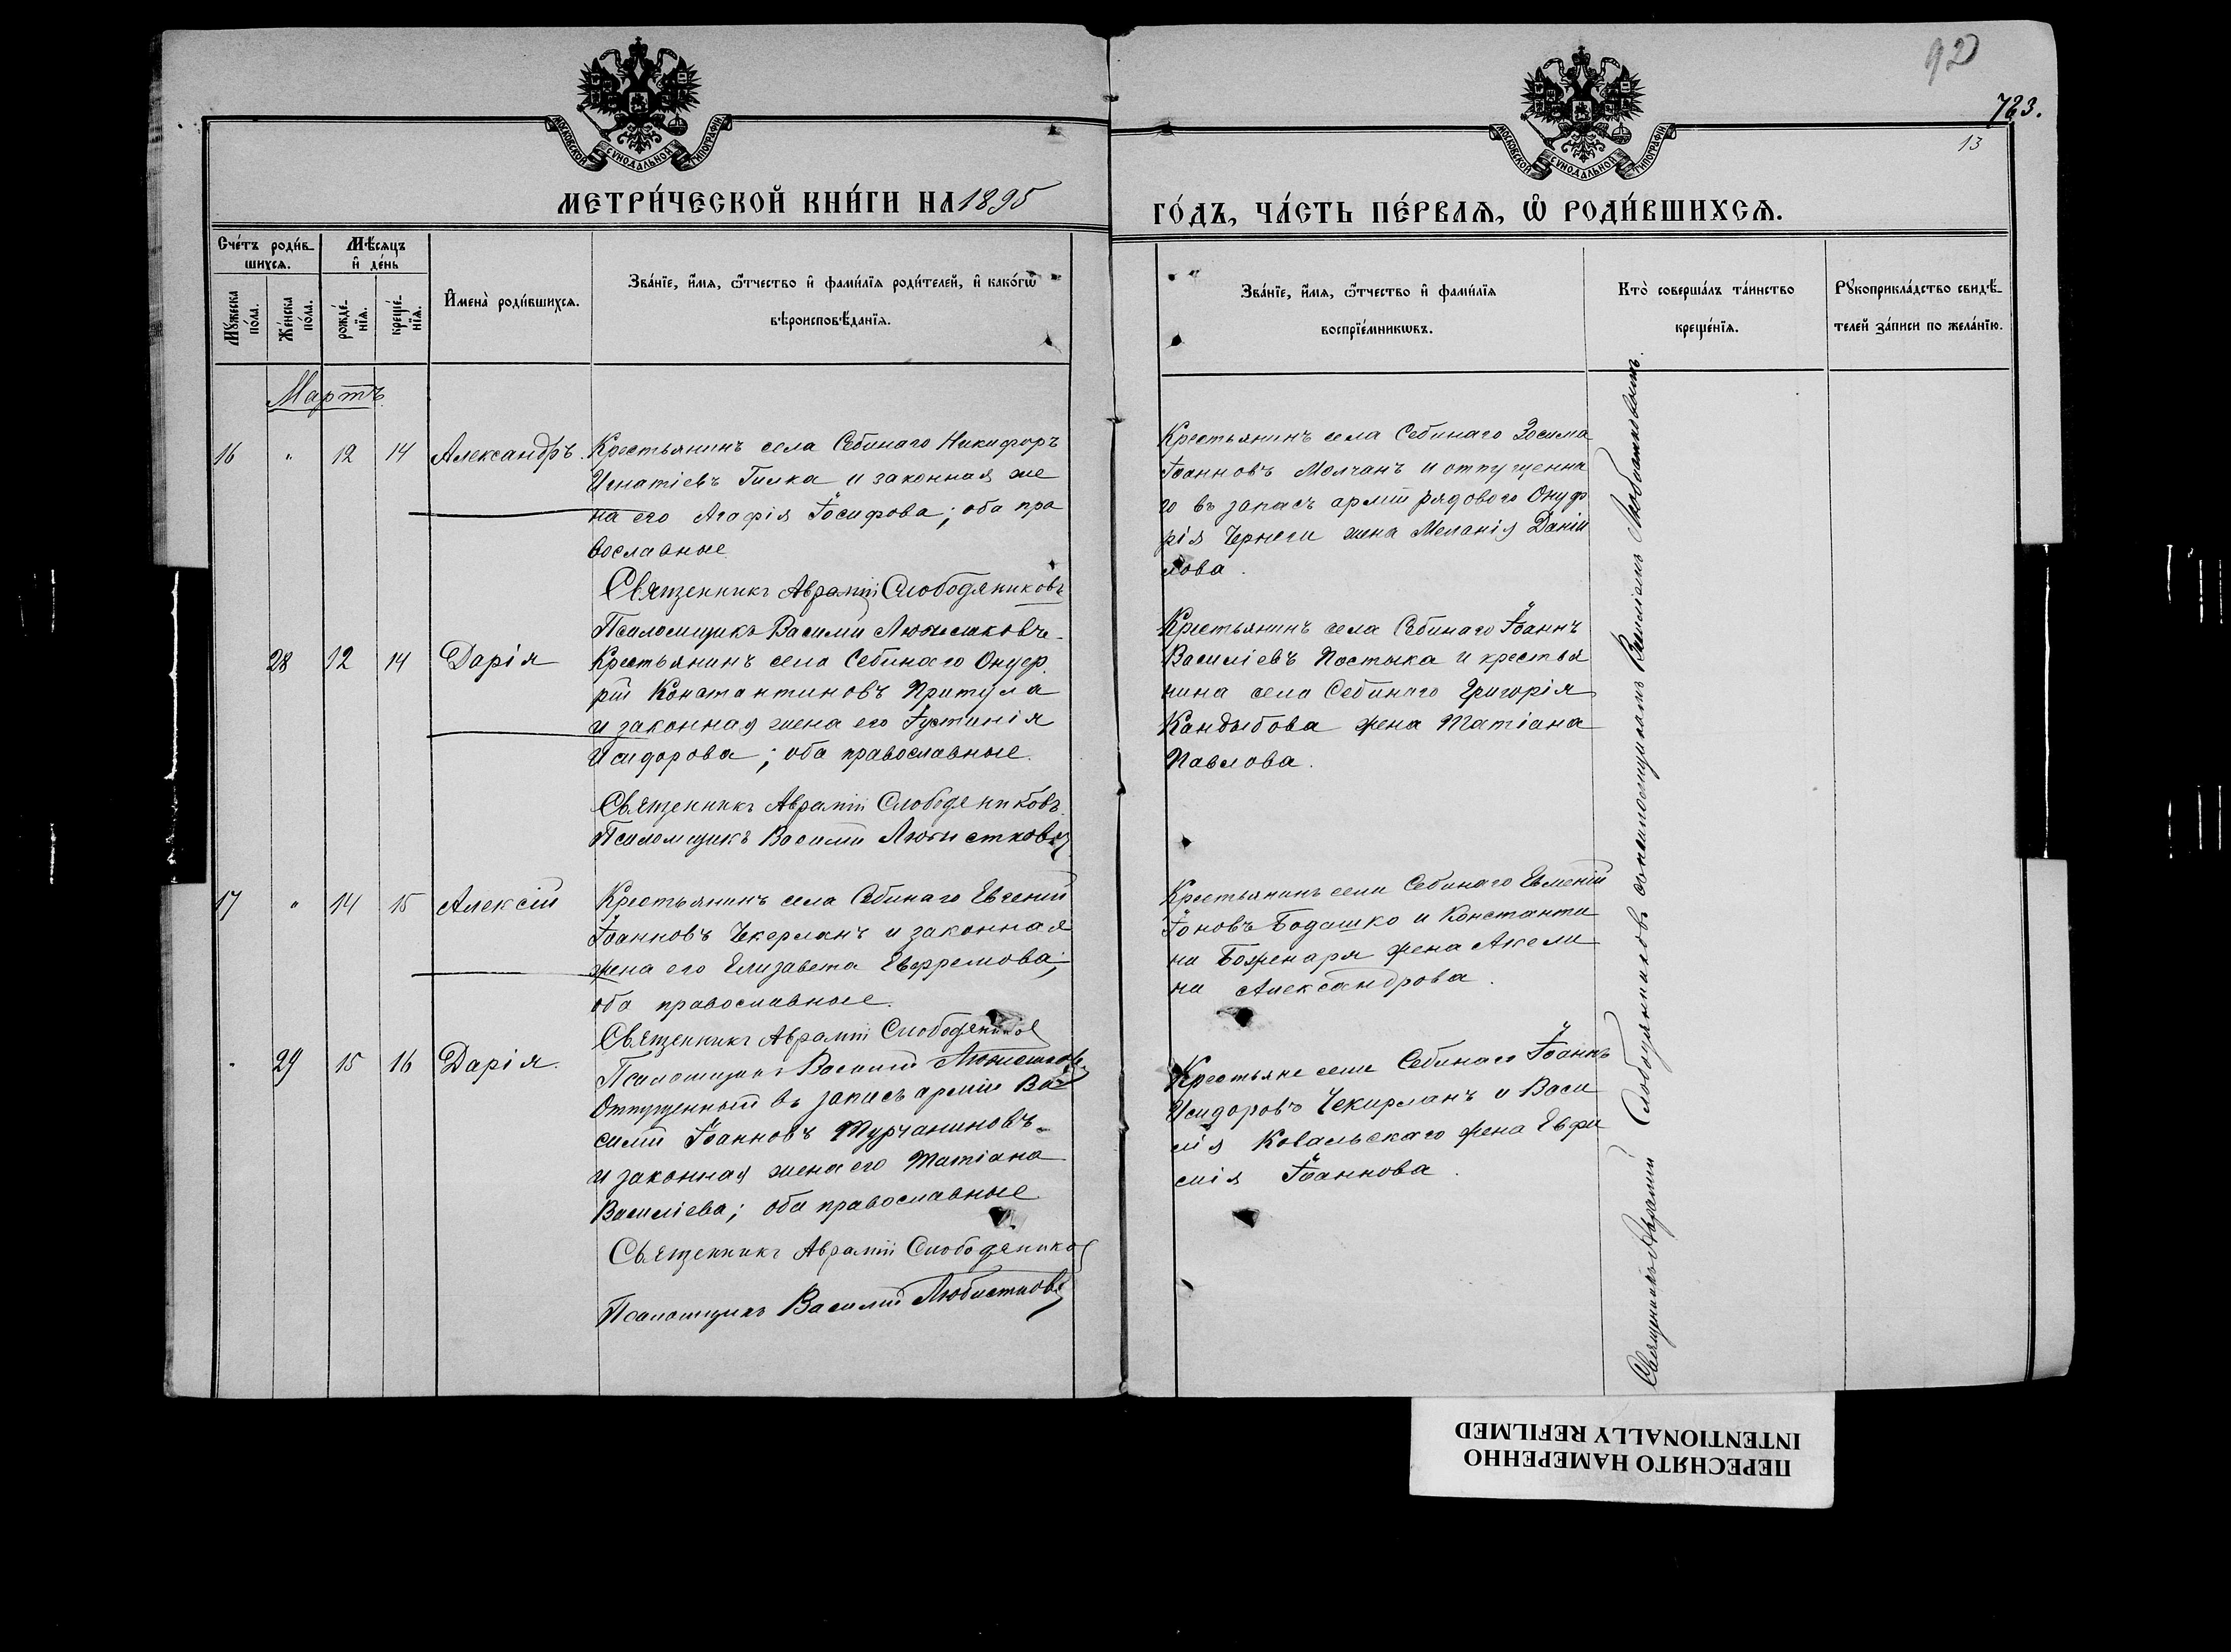 92
723.
13
МОСКОВСКОЙ СѴНОДАЛЬНОЙ ТИПОГРАФІИ
МОСКОВСКОЙ СѴНОДАЛЬНОЙ ТИПОГРАФІИ
МЕТРИ́ЧЕСКОЙ КНИ́ГИ НА 1895
ГО́ДЪ, ЧА́СТЬ ПЕ́РВАѦ, Ѡ РОДИ́ВШИХСѦ.
Сче́тъ роди́вшихсѧ.
Мѣ́сѧцъ и де́нь
Мꙋ́жеска по́ла.
Же́нска по́ла.
рожде́нїѧ.
креще́нїѧ.
Имена̀ роди́вшихсѧ.
Зва́нїе, и́мѧ, ѻ́тчество и фами́лїѧ роди́телей, и како́гѡ
вѣроисповѣ́данїѧ.
Зва́нїе, и́мѧ, ѻ́тчество и фами́лїѧ
воспрїе́мникѡвъ.
Кто̀ соверша́лъ та́инство
креще́нїѧ.
Рꙋкоприкла́дство свидѣ́телей за́писи по жела́нїю.
Мартъ
16 " 12 14 Александръ.
Крестьянинъ села Себинаго Никифоръ
Игнатіевъ Гилка и законная же
на его Агафія Іосифова; оба пра
вославные
Священникъ Аврамій Слободяниковъ
Псаломщикъ Василій Любистковъ
Крестьянинъ села Себинаго Зосима
Іоанновъ Молчанъ и отпущенна
го въ запасъ арміи рядового Онуф
рія Чернеги жена Меланія Даніи
лова.
28 12 14 Дарія
Крестьянинъ села Себинаго Онуф
рій Константиновъ Притула
и законная жена его Іустинія
Исидорова; оба православные.
Священникъ Аврамій Слободяниковъ
Псаломщикъ Василій Любистковъ
Крестьянинъ села Себинаго Іоаннъ
Василіевъ Постыка и крестья
нина села Себинаго Григорія
Кандыбова жена Татіана
Павлова.
17 " 14 15 Алексій
Крестьянинъ села Себинаго Евгеній
Іоанновъ Чекерланъ и законная
жена его Елизавета Ефремова;
оба православные.
Священникъ Аврамій Слободяниковъ
Псаломщикъ Василій Любистковъ
Крестьянинъ села Себинаго Евменій
Іоновъ Бодашко и Константи
на Боженаря жена Акели
на Александрова.
" 29 15 16 Дарія.
Отпущенный въ запасъ арміи Ва
силій Іоанновъ Турчаниновъ
и законная жена его Татіана
Василіева; оба православные
Священникъ Аврамій Слободяниковъ
Псаломщикъ Василій Любистковъ
Крестьяне села Себинаго Іоаннъ
Исидоровъ Чекирланъ и Васи
лія Ковальскаго жена Евфи
мія Іоаннова.
Священникъ Аврамій Слободянниковъ съ псаломщикомъ Василіемъ Любистковымъ.
ПЕРЕСНЯТО НАМЕРЕННО
INTENTIONALLY REFILMED